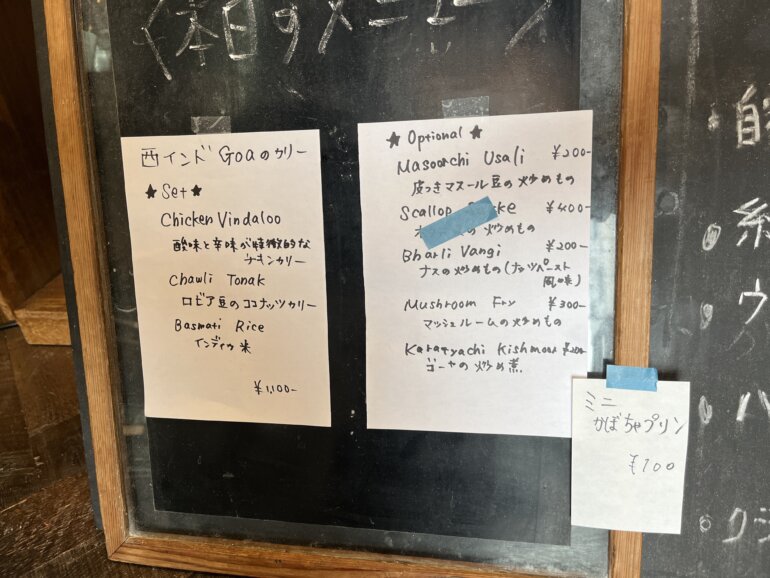 本日のメニュー
西インド Goaのカリー
★Set★
Chicken Vindaloo
酸味と辛味が特徴的な
チキンカリー
Chawli Tonak
ロビア豆のココナッツカリー
Basmati Rice
インディカ米
¥1,100-
★ Optional ★
Masoorchi Usali ¥200-
皮つきマスール豆の炒めもの
Scallop ke ¥400-
の炒めもの
Bharli Vangi ¥200-
ナスの炒めもの(ナッツペースト
風味)
Mushroom Fry ¥300-
マッシュルームの炒めもの
Karatyachi Kishmoor ¥200-
ゴーヤの炒め煮
ミニ
かぼちゃプリン
¥100